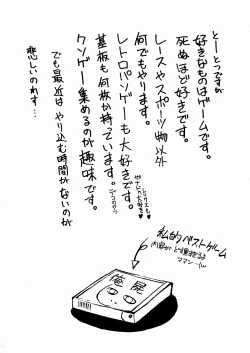 とーとつですが
好きなものはゲームです。
死ぬほど好きです。
レースやスポーツ物以外
何でもやります。
レトロパソゲーも大好きです。
基板も何枚か持っています。
クソゲー集めるのが趣味です。
でも最近は やり込む時間がないのが
悲しいのれす…
私的ベストゲーム
俺屍